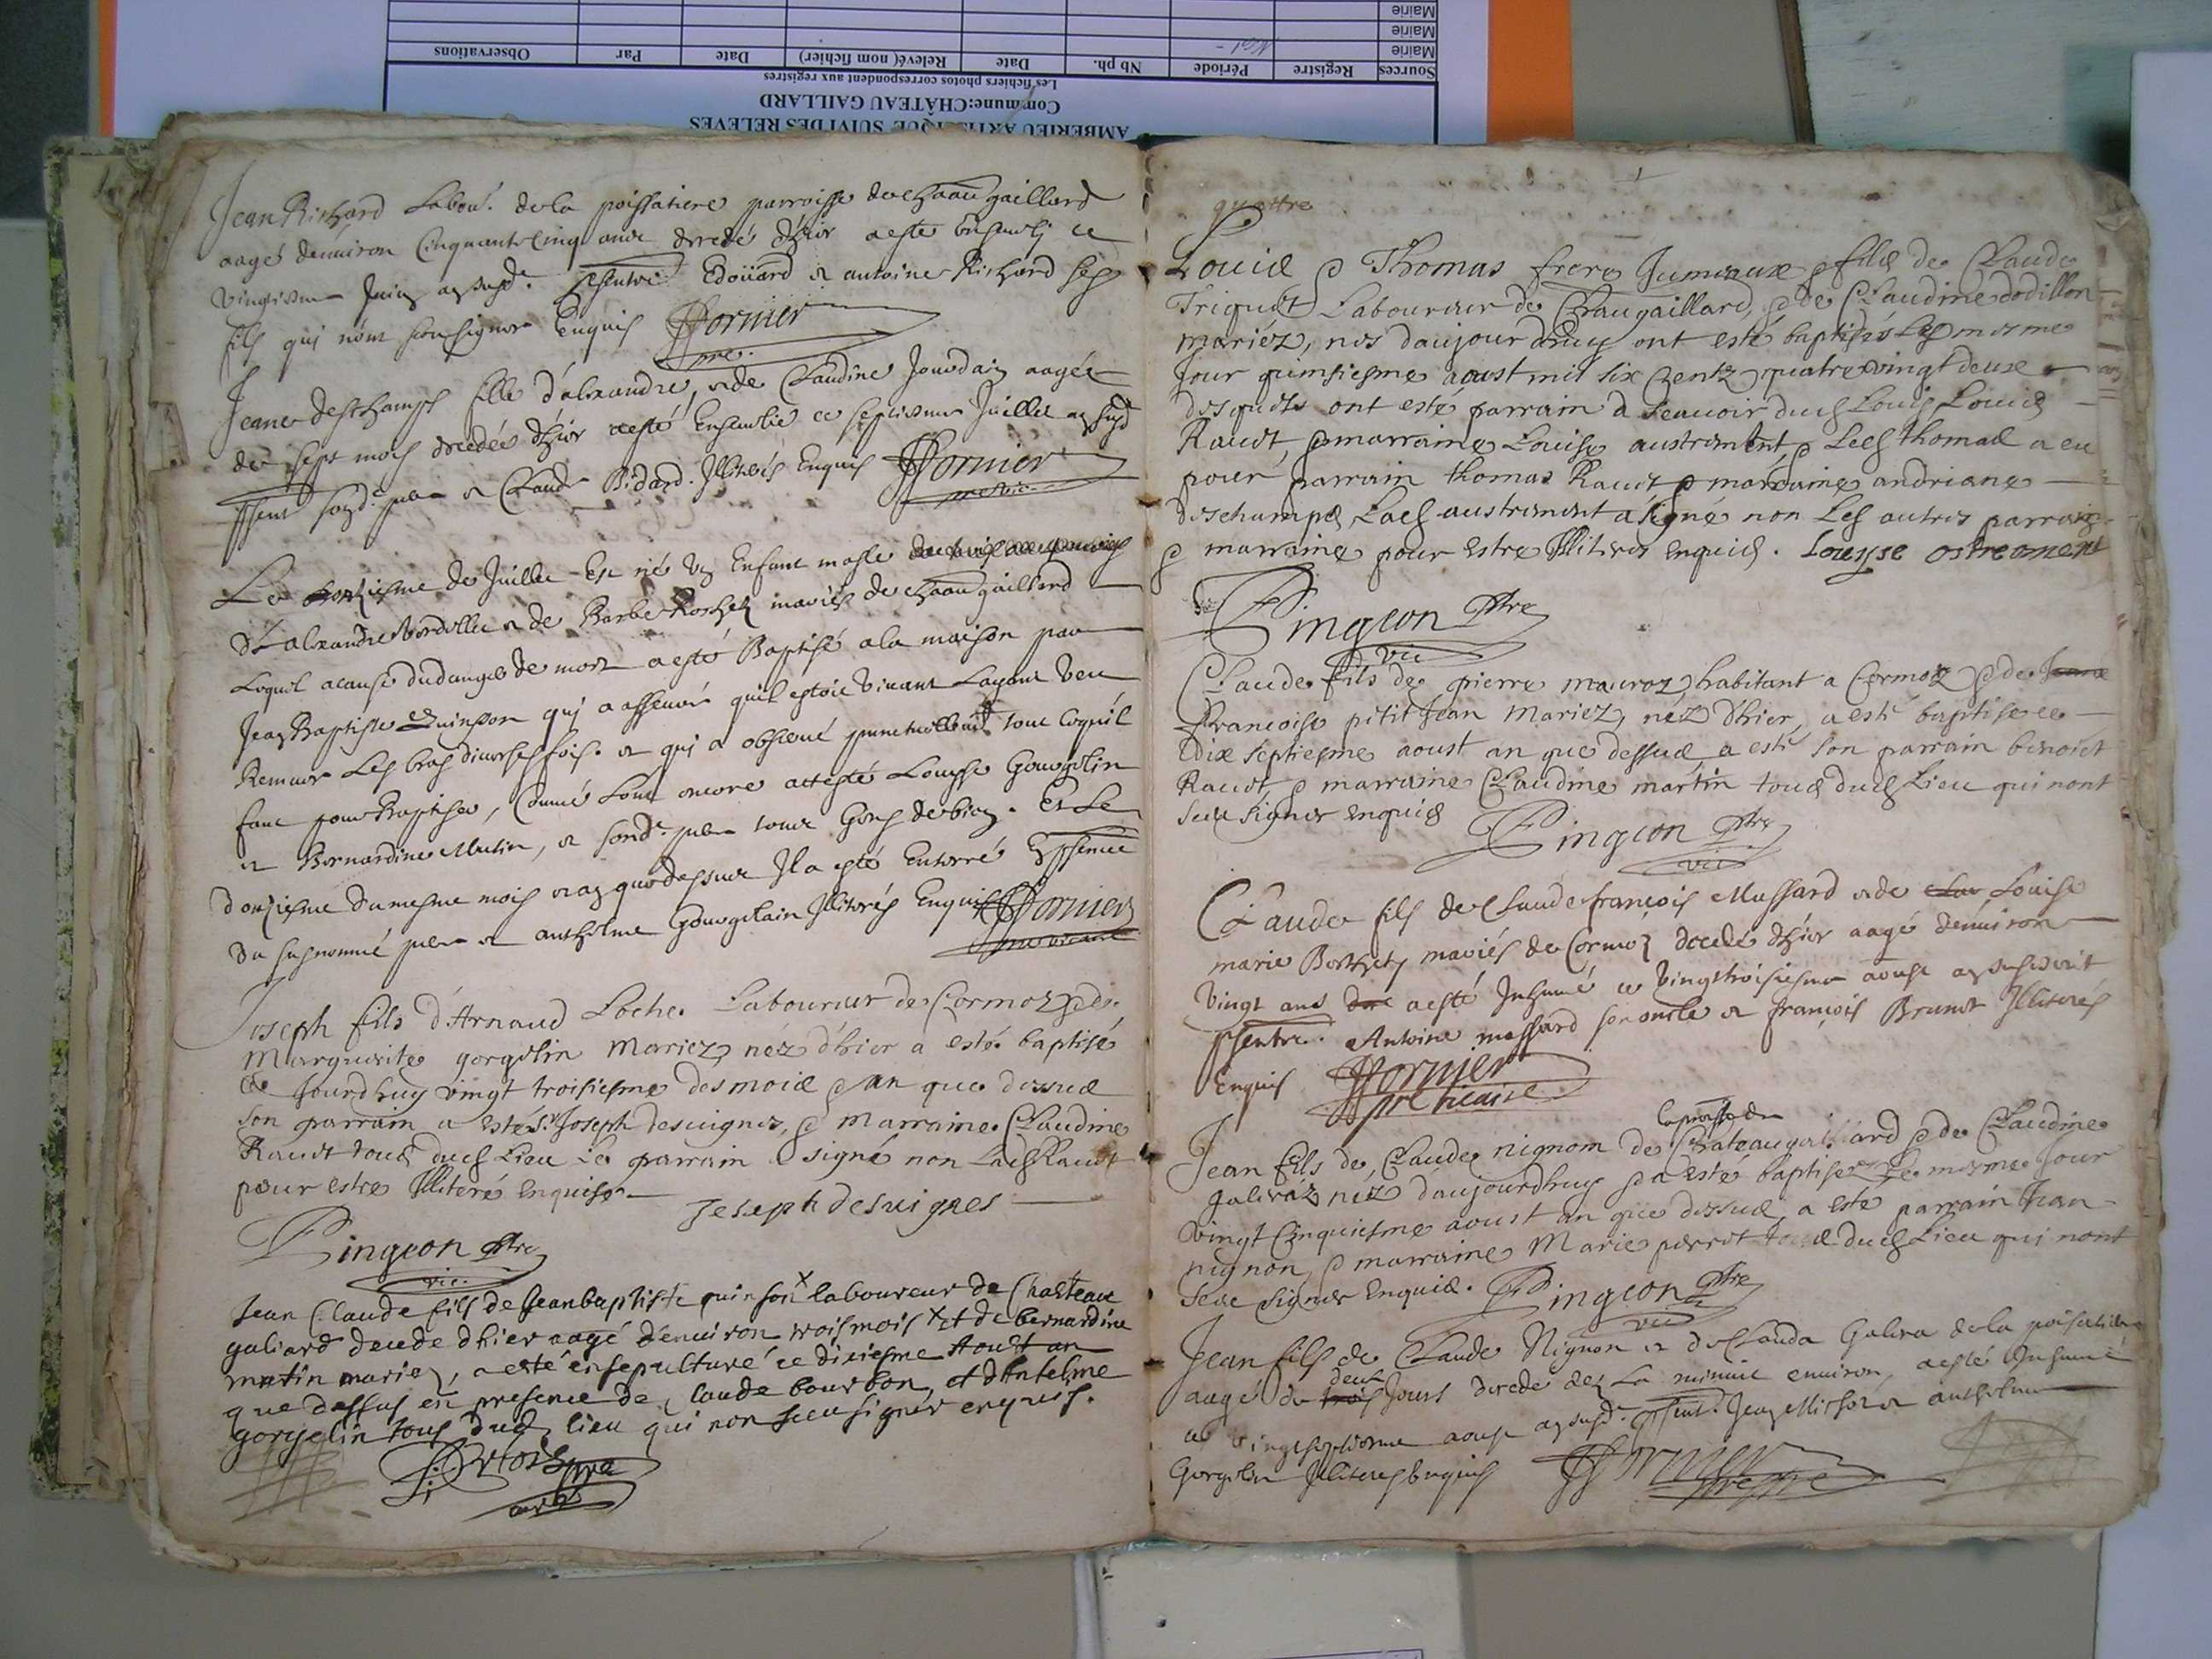 Mairie
Mairie
Mairie
Sources Registre Période Nb ph. Date Relevé( nom fichier) Date Par Observations
Les fichiers photos correspondent aux registres
Commune:CHÂTEAU GAILLARD
SUIVI DES RELEVES
Jean Richard Labou.r dela poissatiere parroisse de chaau gaillard
aagé denuiron Cinquante cinq ans decedé d'hier a esté enseuely ce
vingtiesme Juin an susd. Edoüard et antoine Richard ses
fils qui n'ont sceu signer Enquis fornier
pre.
Jeane deschamps fille d'alexandre et de Claudine Jourdain aagée
de sept mois decedée d'hier a esté Enseuelie ce septiesme Juillet an susd
sond. pere et Claude Bidard. Illiterés Enquis fornier
Le onziesme de Juillet Est né un Enfant masle
d'alexandre Bordellet et de Barbe Rochex mariés de chaau gaillard
Lequel a cause du danger de mort a esté Baptisé a la maison par
Jean Baptiste Quinson qui a asseuré quil estoit viuant Layant veu
Remuer Les bras diuerses fois. et qui a obserué punctuellement tout ce quil
faut pour Baptiser, Comme l'ont encore attesté Louyse Gourgelin
et Bernardine Mutin, et sond. pere tous Gens de bien. Et Le
douziesme du mesme mois et an que dessus Il a esté Enterré En psence
du susnommé pere et anthelme Gourgelain Illiterés Enquis fornier
pre vicaire
Joseph fils d'Arnaud Loche. Laboureur de Cormoz et de
Marguerite gorgelin Mariez, néz d'hier a esté baptisé
ce Jourdhuy vingt troisiesme des mois et an que dessus
son parrain a esté Sr. Joseph desuignes, et Marraine Claudine
Raudt tous dud Lieu Le parrain a signé non Lad Raudt
pour estre Illiteré enquise.
Joseph desuignes
Pingeon ptre
vic.
Jean Claude fils de Jean baptiste quinson x laboureur de Chasteau
galiard decede dhier aagé denuiron trois mois x et de bernardine
mutin mariez, a esté ensepulturé ce dixiesme Aoust an
que dessus en presence de Claude bourbon, et dAntelme
gorgelin tous dud lieu qui non sceu signer enquis.
quattre
Louis et Thomas freres Jumeaux fils de Claude
Triquet Laboureur de Chaugaillard, et de Claudine dodillon
mariéz, nes daujourdhuy ont esté baptisés Le mesme
Jour quinsiesme aoust mil six Centz quatre vingt deux
desquels ont esté parrain a scauoir dud Louis Louis
Raudt, et marraine Louise austrement, et Led thomas a eu
pour parrain thomas Raudt et marraine andriane
deschamps, Lad austrement a signé non Les autres parrain
et marraine pour estre Illiteres enquis. Louyse ostrement
Pingeon Ptre
vic
Claude fils de pierre mauroz, habitant a Cormoz et de
francoise petit Jean Mariez, néz d'hier, a esté baptisé ce
dix septiesme aoust an que dessus a esté son parrain benoict
Raudt, et marraine Claudine martin tous dud Lieu qui nont
sceu signer enquis Pingeon Ptre
vic
Claude fils de Claude françois Massard et de Louise
marie Borthet mariés de Cormoz decedé d'hier aagé denuiron
vingt ans a esté Inhumé ce vingt troisiesme aoust an susescrit
Antoine massard son oncle et françois Brunet Illiterés
Enquis fornier
pre vicaire
Jean fils de Claude nignom de Chateaugaillard et de Claudine
galiraz néz daujourdhuy et a esté baptisé Le mesme Jour
vingt Cinquiesme aoust an que dessus a esté parrain Jean
nignon, et marraine Marie perret tous dud Lieu qui nont
sceu signer enquis. Pingeon Ptre
vic
Jean fils de Claude Nignon et de Clauda Galira de la poisatiere
aagé de deux Jours decede dez La minuit enuiron, a esté Inhumé
ce vingt septiesme aoust an susd. Jean Michor et anthelme
Gorgelin Illiteres Enquis fornier